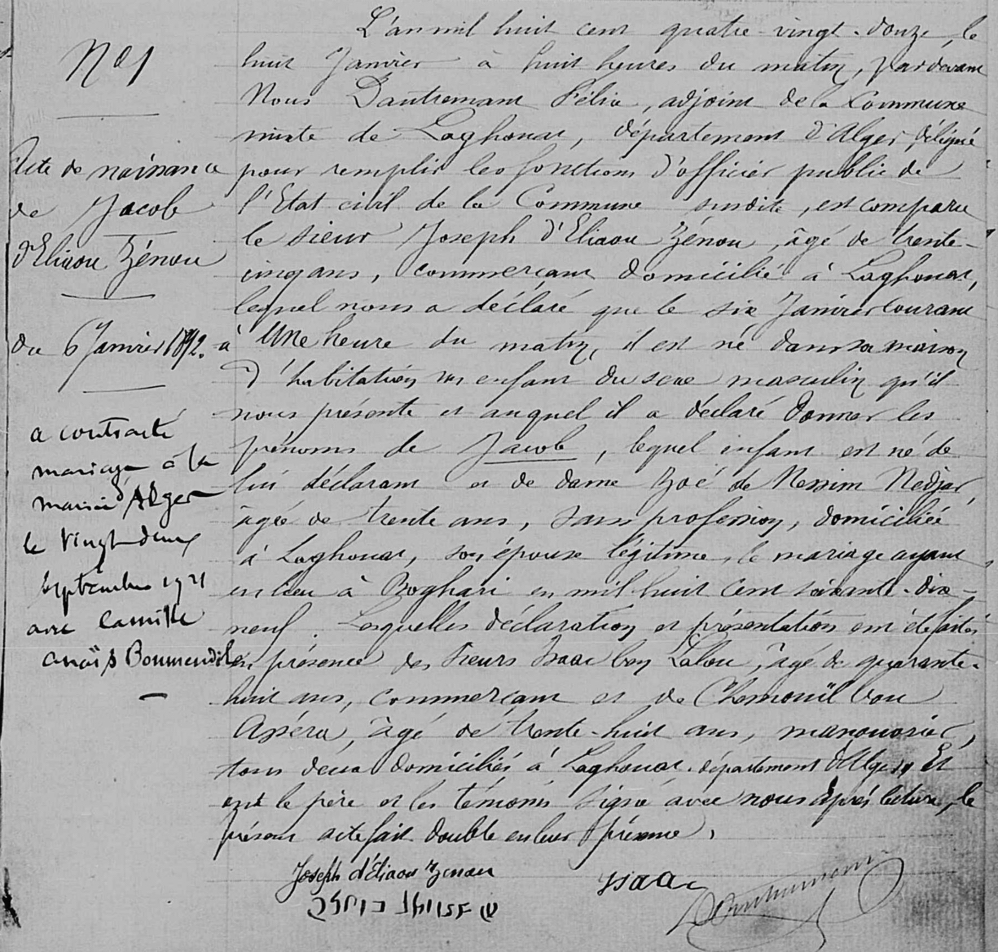 Nº 1
Acte de naissance
de Jacob
d'Eliaou Zénou
du 6 Janvier 1892.
a contracté
mariage à la
mairie d'Alger
le vingt-deux
septembre 1921
avec Camille
Anaïs Boumendil
L'an mil huit cent quatre-vingt-douze, le
huit Janvier à huit heures du matin, pardevant
Nous Dautremant Félix, adjoint de la Commune
mixte de Laghouat, département d'Alger, délégué
pour remplir les fonctions d'officier public de
l'Etat civil de la Commune susdite, est comparu
le sieur Joseph d'Eliaou Zénou, âgé de trente-
cinq ans, commerçant domicilié à Laghouat,
lequel nous a déclaré que le six Janvier courant
à Une heure du matin, il est né dans sa maison
d'habitation un enfant du sexe masculin qu'il
nous présente et auquel il a déclaré donner les
prénoms de Jacob, lequel enfant est né de
lui déclarant et de dame Zoé de Nessim Nedjar,
âgée de trente ans, sans profession, domiciliée
à Laghouat, son épouse légitime, le mariage ayant
eu lieu à Boghari en mil huit cent soixante-dix-
neuf. Lesquelles déclaration et présentation ont été faites
en présence des sieurs Isaac ben Lalou, âgé de quarante-
huit ans, commerçant et de Chemouïl bou
Aséra, âgé de trente-huit ans, manouvrier,
tous deux domiciliés à Laghouat département d'Alger Et
ont le père et les témoins signé avec nous après lecture, le
présent acte fait double en leur présence.
Joseph d'Eliaou Zenou
Isaac
Dautremant